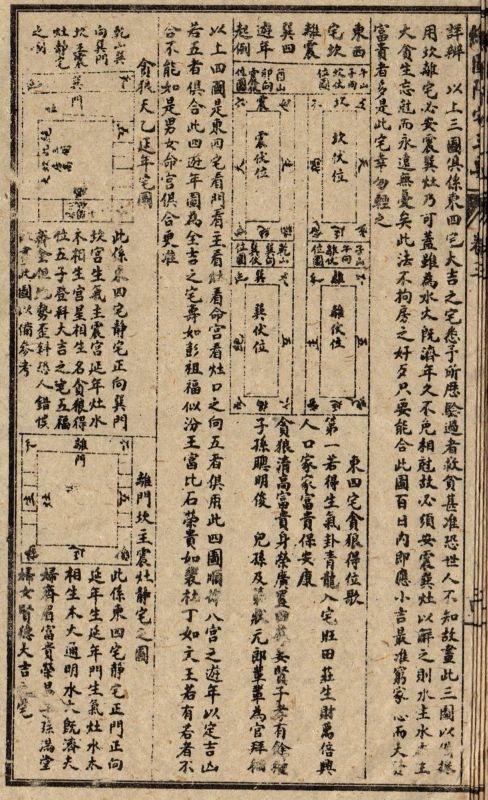 詳辦 以上三圖俱係東四宅大吉之宅悉予所歷驗過者救貧甚准恐世人不知故畫此三圖以備採
用坎離宅必安震巽灶乃可蓋雖為水火既濟年久不免相尅故必須安震巽灶以解之則水生木木生
大貪生忘尅而永遠無憂矣此法不拘房之好歹只要能合此圖百日內即應小吉最准窮家 心而大
富貴者多是此宅幸勿輕之
東西
宅坎
離震
巽四
遊年
起例
午山
子向
坎伏
位圖
坎伏位
酉山
卯向
震伏
位圖
震伏位
子山
午向
離伏
位圖
離伏位
乾山
巽向
巽伏
位圖
巽伏位
東四宅貪狼得位歌
第一若得生氣卦青龍入宅旺田莊生財萬倍興
人口家家富貴保安康
貪狼清高富貴身榮廣置四莊妻賢子孝有餘糧
子孫聰明俊 兒孫及第狀元郎輩輩為官拜
以上四圖是東四宅看門看主看灶看命宮看灶口之向五者俱用此四圖順佈八宮之遊年以定吉凶
若五者俱合此四遊年圖為全吉之宅壽如彭祖福似汾王富比石榮貴如裴杜丁如文王若有若者不
合不能如是男女命宮俱合更准
貪狼天乙延年宅圖
乾山巽
向巽門
坎主震
灶靜宅
之圖
巽門
此係東四宅靜宅正向巽門
坎宮生氣主震宮延年灶水
木相生宮星相生名貪狼得
位五子登科大吉之宅五福
齊全但此勢歪斜恐人錯悞
此圖以備參考
離門坎主震灶靜宅之圖
離門
此係東四宅靜宅正門正向
延年主延年門生氣灶水木
相生木火通明水火既濟夫
婦齊眉富貴榮昌子孫滿堂
婦女賢德大吉之宅